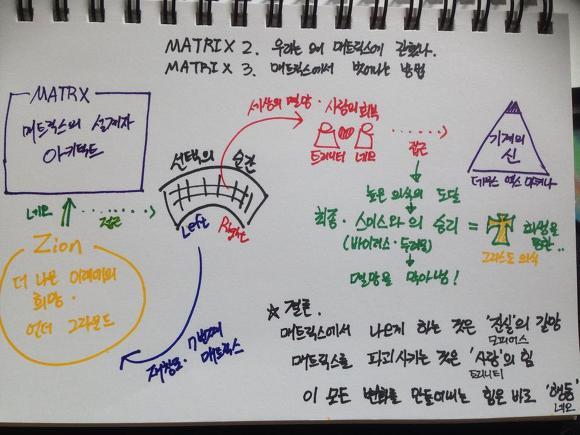 MATRIX 2. 우리는 왜 매트릭스에 갇혔나.
MATRIX 3. 매트릭스에서 벗어나는 방법
MATRX
매트릭스의 설계자
아키텍트
세상의 멸망 · 사랑의 회복
트리니티 네오
접근
기계의
신
데우스 엑스 마키나
선택의 순간
Left Right
네오
접근
Zion
더 나은 미래에의
희망 ·
언더 그라운드
재창조 · 7번째
매트릭스
높은 의식의 도달
최종 · 스미스와의 승리 =
(바이러스 · 두려움)
멸망을 막아냄!
희생을
통한..
그리스도 의식
☆ 결론.
매트릭스에서 나온게 하는 것은 '진실'의 갈망
모피어스
매트릭스를 파괴시키는 것은 '사랑'의 힘
트리니티
이 모든 변화를 만들어내는 힘은 바로 '행동'
네오